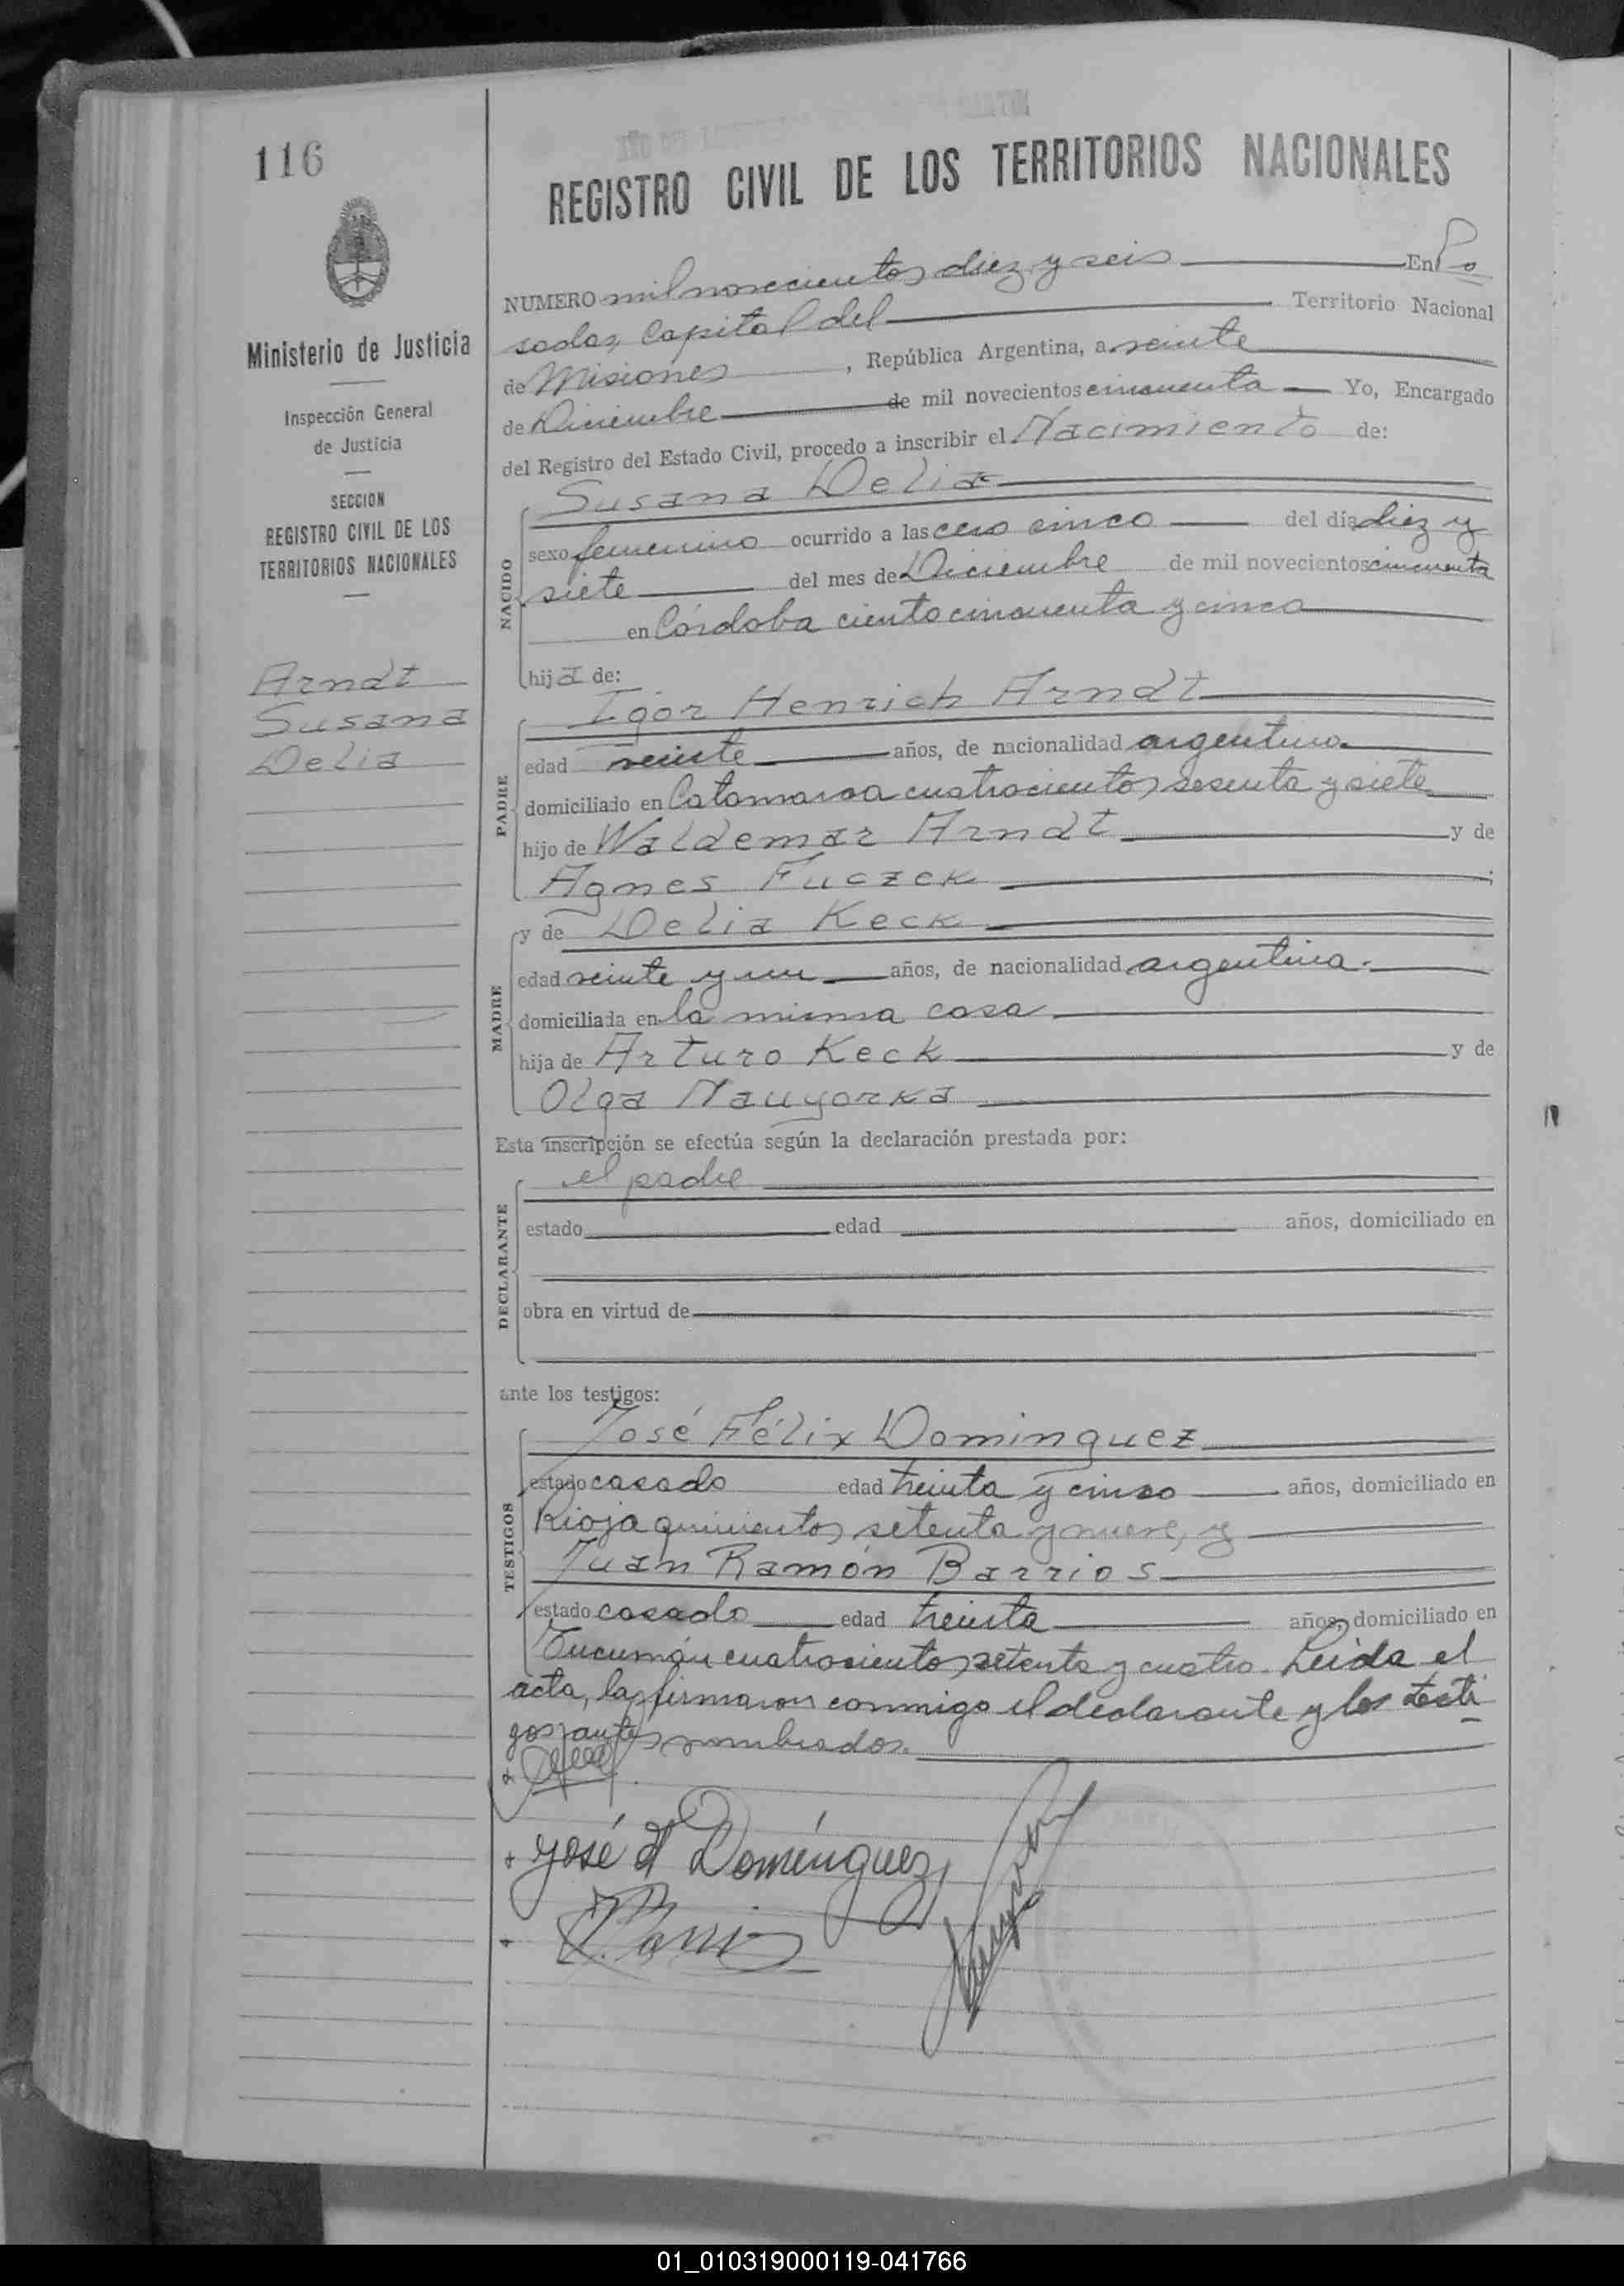 116
REGISTRO CIVIL DE LOS TERRITORIOS NACIONALES
Ministerio de Justicia
Inspección General
de Justicia
SECCION
REGISTRO CIVIL DE LOS
TERRITORIOS NACIONALES
Arndt
Susana
Delia
NUMERO mil novecientos diez y seis En Po
sadas, Capital del Territorio Nacional
de Misiones, República Argentina, a veinte
de Diciembre de mil novecientos cincuenta Yo, Encargado
del Registro del Estado Civil, procedo a inscribir el Nacimiento de:
NACIDO
Susana Delia
sexo femenino ocurrido a las cero cinco del día diez y
siete del mes de Diciembre de mil novecientos cincuenta
en Córdoba ciento cincuenta y cinco
hija de:
PADRE
Igor Henrich Arndt
edad veinte años, de nacionalidad argentina
domiciliado en Catamarca cuatrocientos sesenta y siete
hijo de Waldemar Arndt y de
Agnes Fuczek;
MADRE
y de Delia Keck
edad veinte y un años, de nacionalidad argentina.
domiciliada en la misma casa
hija de Arturo Keck y de
Olga Nauyorka
Esta inscripción se efectúa según la declaración prestada por:
DECLARANTE
el padre
estado edad años, domiciliado en
obra en virtud de
ante los testigos:
TESTIGOS
José Félix Dominguez
estado casado edad treinta y cinco años, domiciliado en
Rioja quinientos setenta y nueve, y
Juan Ramón Barrios
estado casado edad treinta años, domiciliado en
Tucumán cuatrocientos setenta y cuatro. Leida el
acta, la firmaron conmigo el declarante y los testi
gos antes nombrados.
José F Domínguez
R. Barrios
01_010319000119-041766